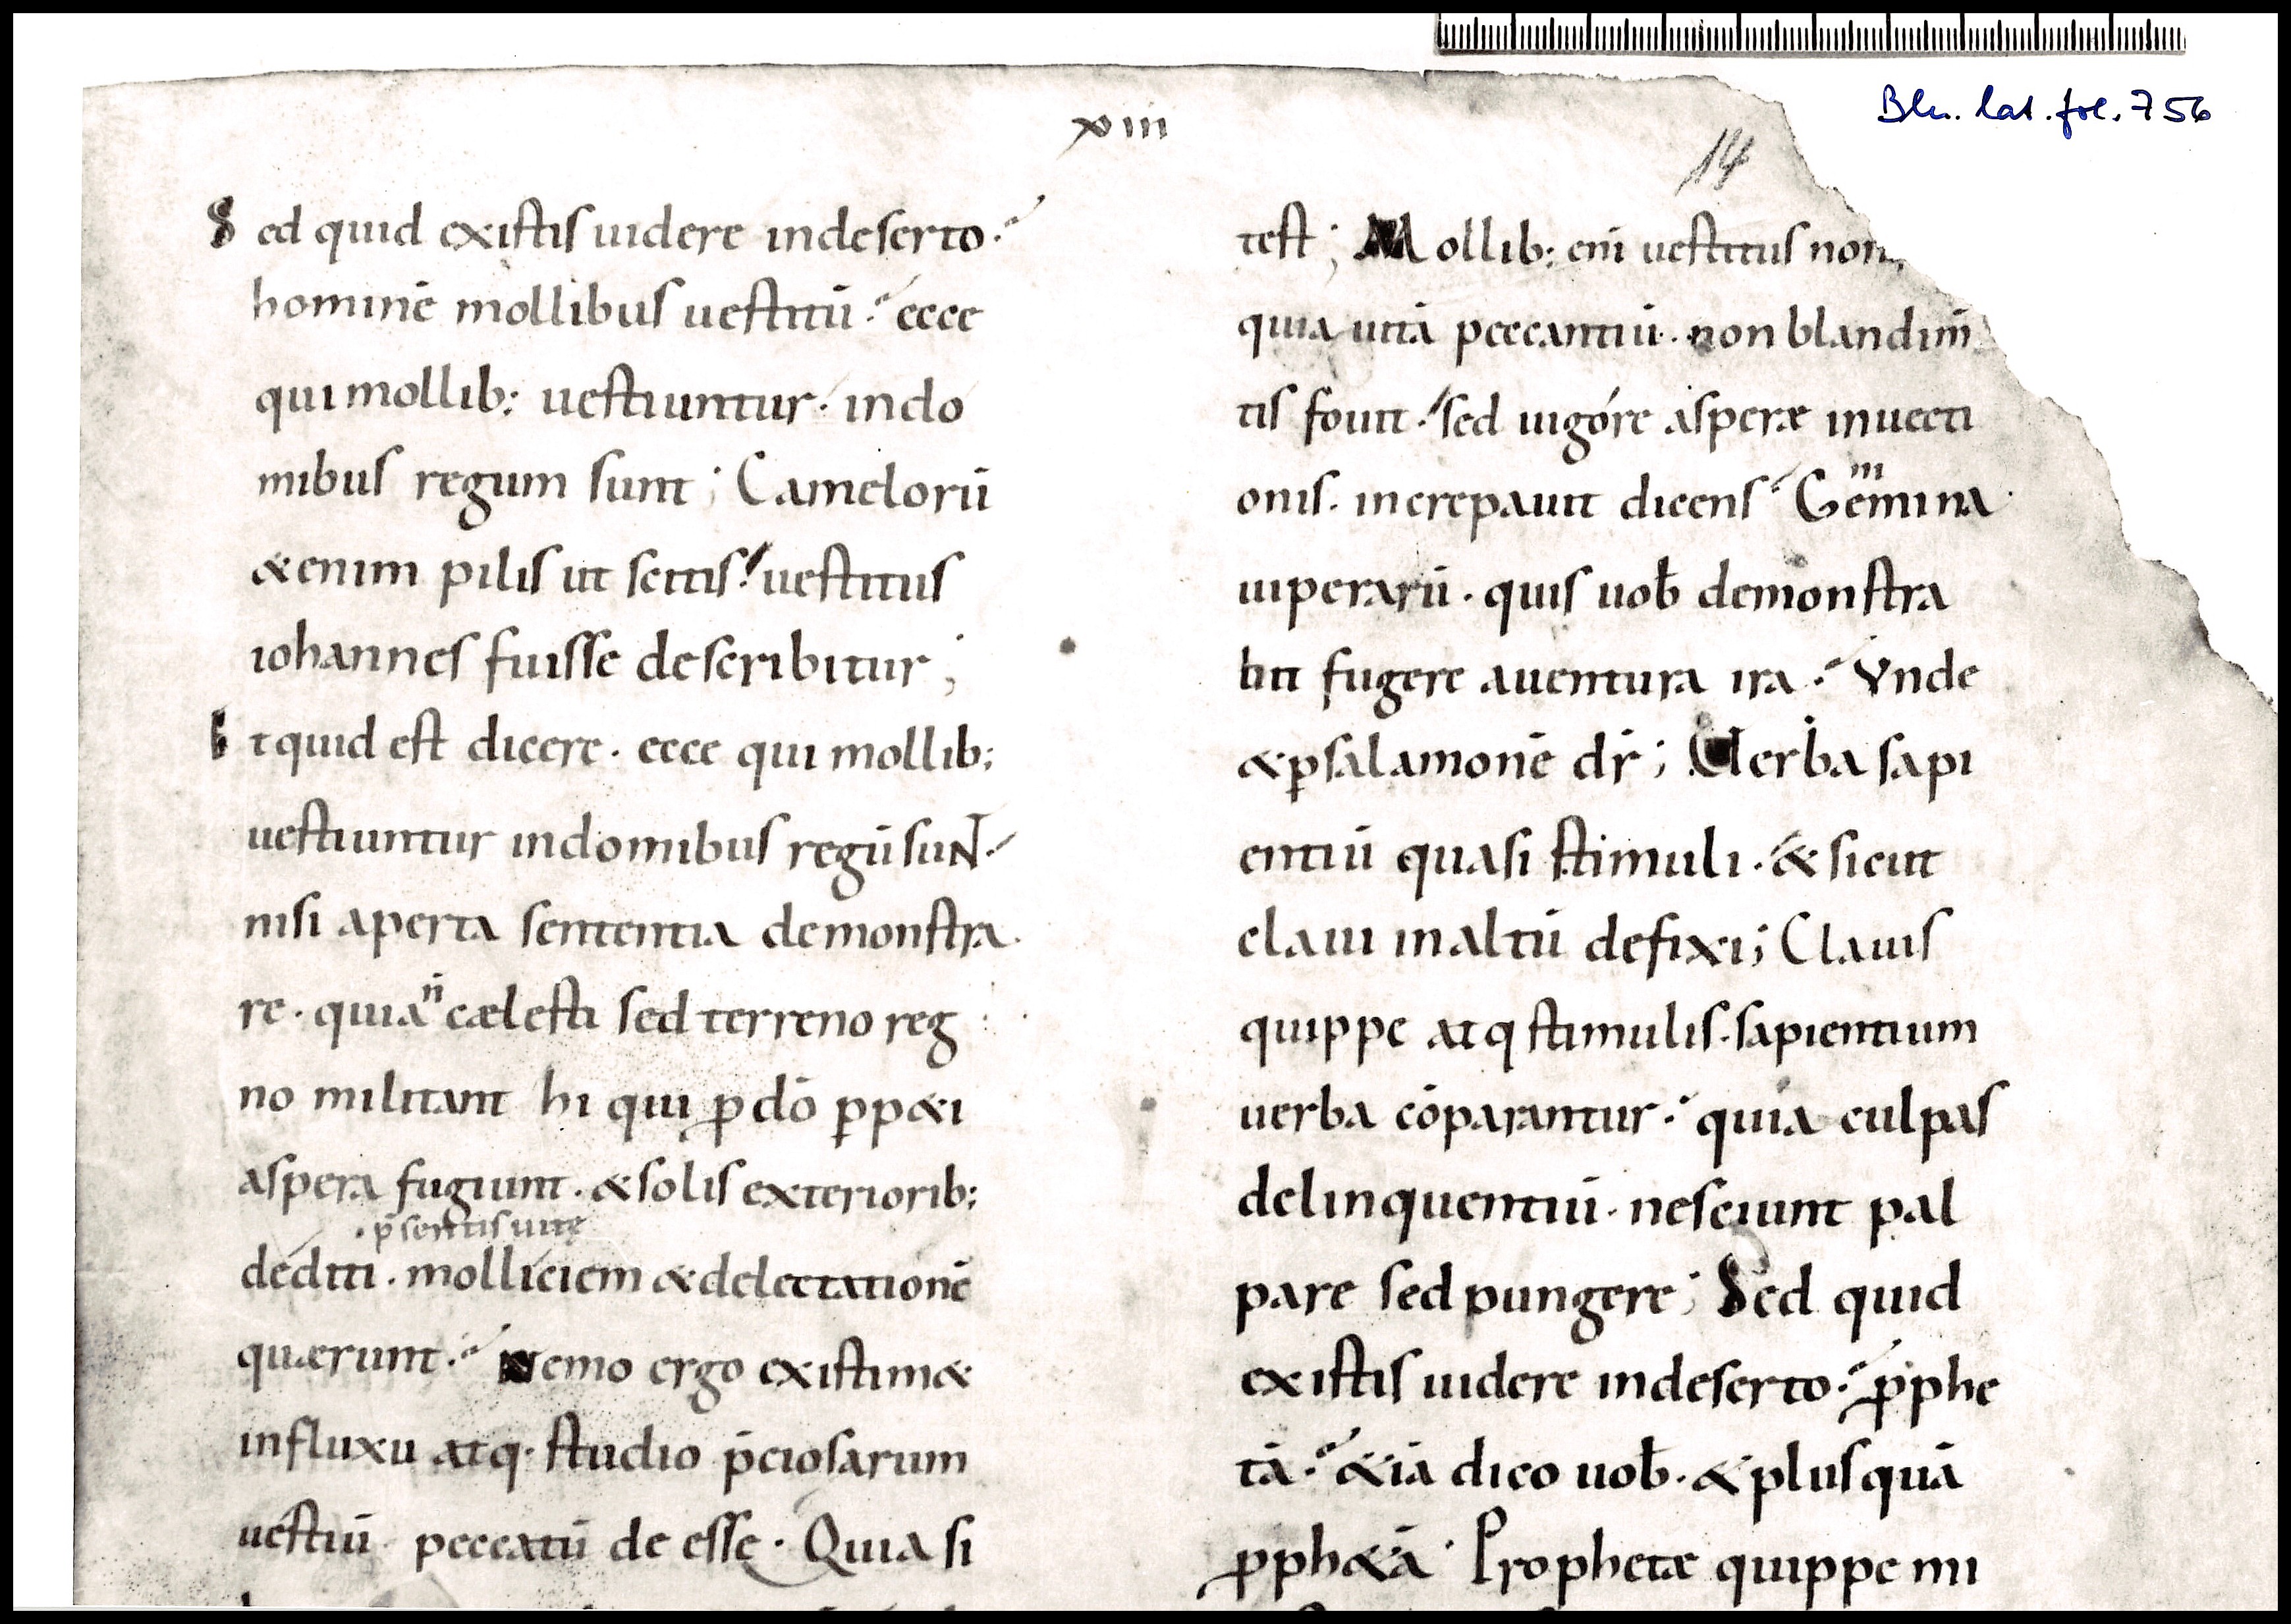 Bln. lat. fol. 756
xiii
14
Sed quid existis uidere indeserto·
hominē mollibus uestitū· ecce
qui mollib; uestiuntur· indo
mibus regum sunt; Camelorū
&enim pilis ut setis· uestitus
iohannes fuisse describitur;
Et quid est dicere· ecce qui mollib;
uestiuntur indomibus regū suNT·
nisi aperta sententia demonstra
re· quia n̄ cælesti sed terreno reg
no militant hi qui ꝓ dō ꝑp&i
aspera fugiunt· & solis exteriorib;
·p̄sentis uitę
dediti· molliciem & delectationē
quærunt· Nemo ergo existim&
influxu atq· studio p̄ciosarum
uestiū peccatū de esse· Quia si
test; Mollib; eni uestitus non
quia uitā peccantiū· non blandim
tis fouit· sed uigóre asperæ inuecti
onis· increpauit dicens· Gemina
m
uiperarū· quis uob̄ demonstra
bit fugere auentura ira· Vnde
& ꝑ salamonē dr̄; Uerba sapi
entiū quasi stimuli· & sicut
claui inaltū defixi; Clauis
quippe atq stimulis· sapientium
uerba cōparantur· quia culpas
delinquentiū· nesciunt pal
pare sed pungere; Sed quid
existis uidere indeserto· ꝓphe
tā· &iā dico uob̄· & plusquā
ꝓph&ā· Prophetæ quippe mi